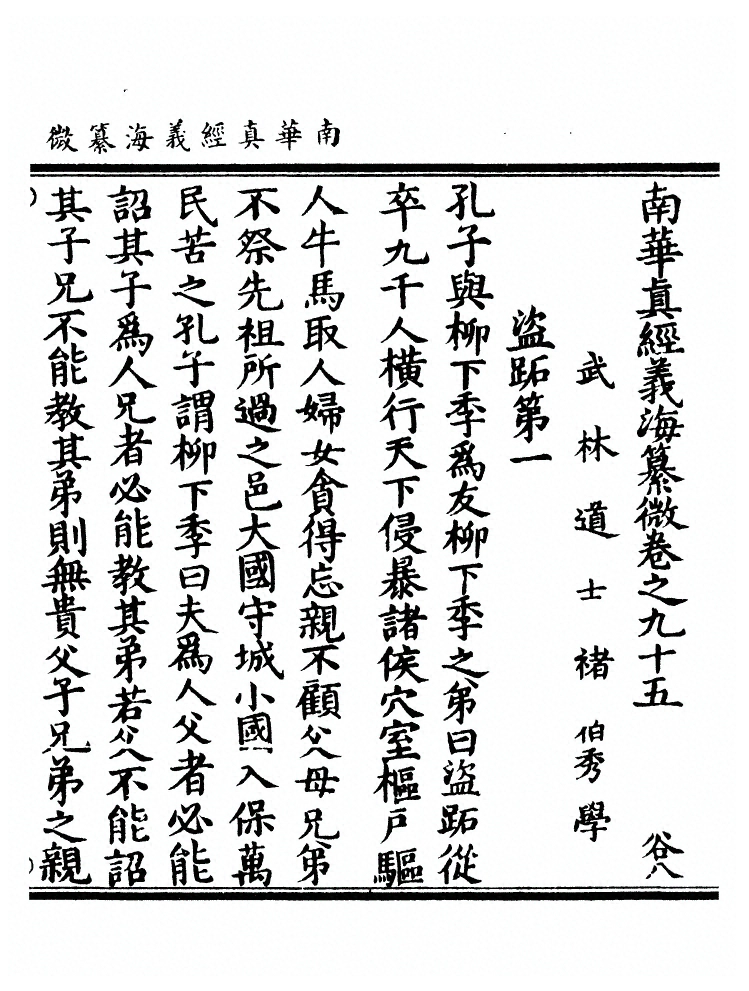 南華真經義海纂微
南華眞經義海纂微卷之九十五 谷八
武林道士褚伯秀學
盜跖第一
孔子與柳下季爲友柳下季之弟曰盜跖從
卒九千人橫行天下侵暴諸侯穴室樞戶驅
人牛馬取人婦女貪得忘親不顧父母兄弟
不祭先祖所過之邑大國守城小國入保萬
民苦之孔子謂柳下季曰夫爲人父者必能
詔其子爲人兄者必能教其弟若父不能詔
其子兄不能教其弟則無貴父子兄弟之親